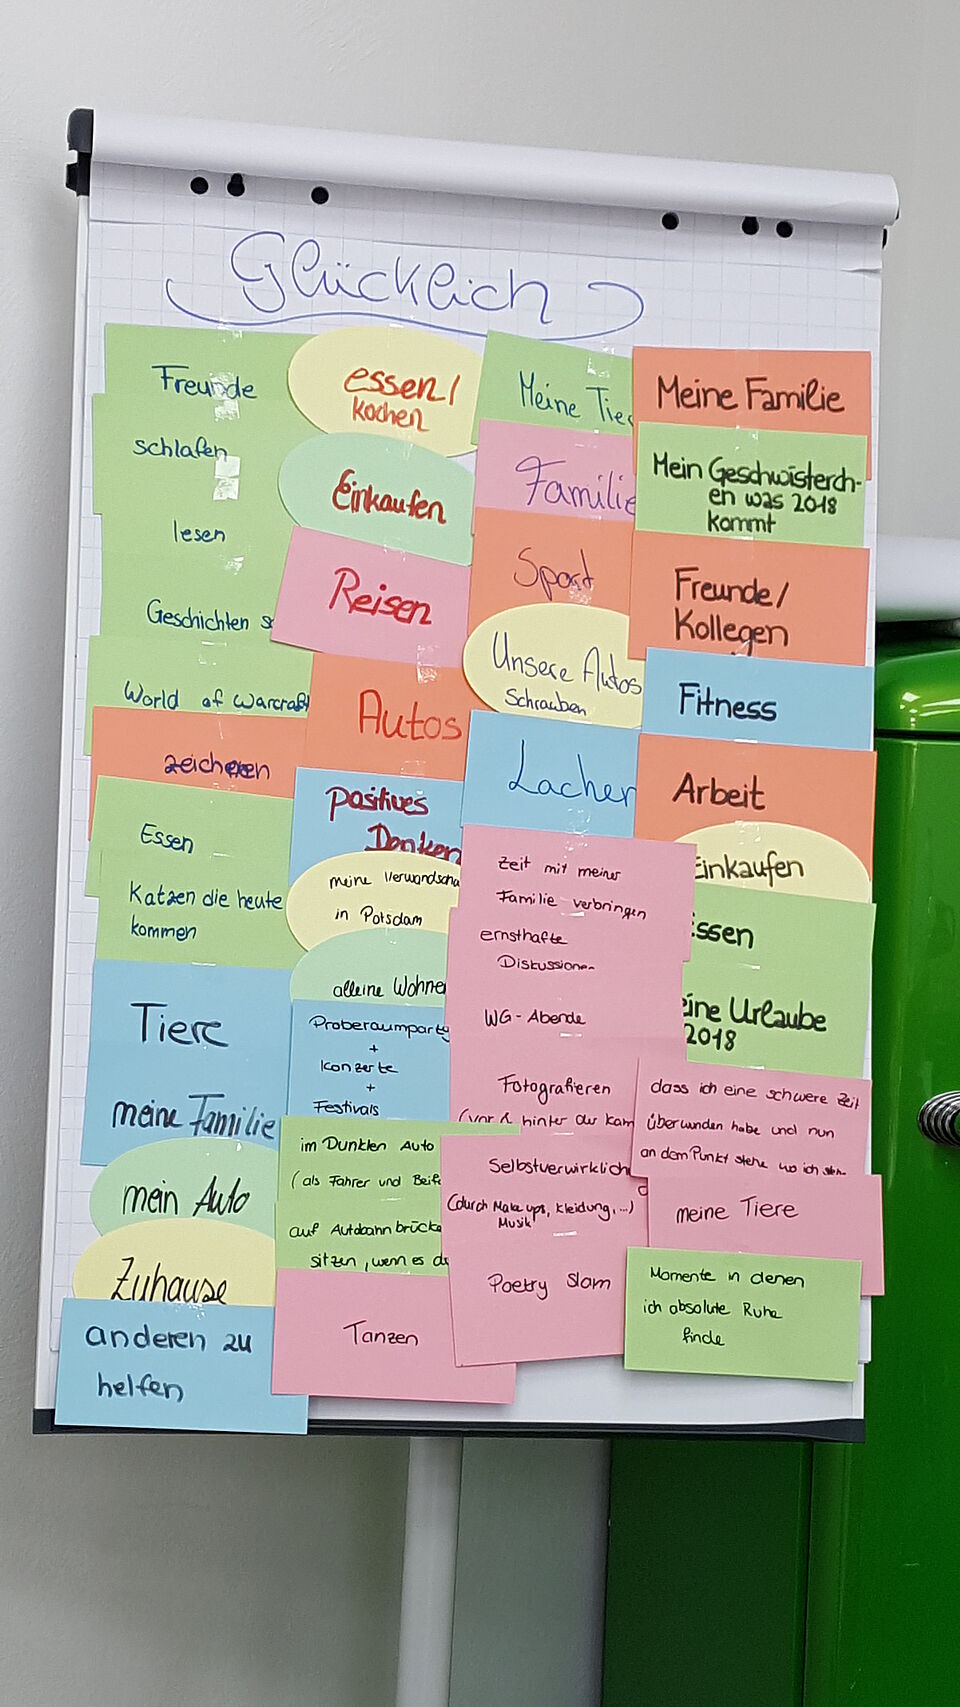 Glücklich
Freunde
schlafen
lesen
Geschichten
World of Warcraft
zeichnen
Essen
Katzen die heute
kommen
Tiere
meine Familie
mein Auto
Zuhause
anderen zu
helfen
essen /
kochen
Einkaufen
Reisen
Autos
positives
Denken
meine Verwandscha
in Potsdam
alleine Wohne
Proberaumparty
+
Konzerte
+
Festivals
im Dunklen Auto
(als Fahrer und Beif
auf Autobahnbrücke
sitzen, wenn es d
Tanzen
Meine Tie
Familie
Sport
Unsere Autos
Schrauben
Lachen
Zeit mit meiner
Familie verbringen
ernsthafte
Diskussionen
WG-Abende
Fotografieren
(vor & hinter der Kam
Selbstverwirklich
(durch Make ups, Kleidung, ...)
Musik
Poetry Slam
Meine Familie
Mein Geschwisterch-
en was 2018
kommt
Freunde/
Kollegen
Fitness
Arbeit
Einkaufen
Essen
eine Urlaube
2018
dass ich eine schwere Zeit
überwunden habe und nun
an dem Punkt stehe wo ich
meine Tiere
Momente in denen
ich absolute Ruhe
finde